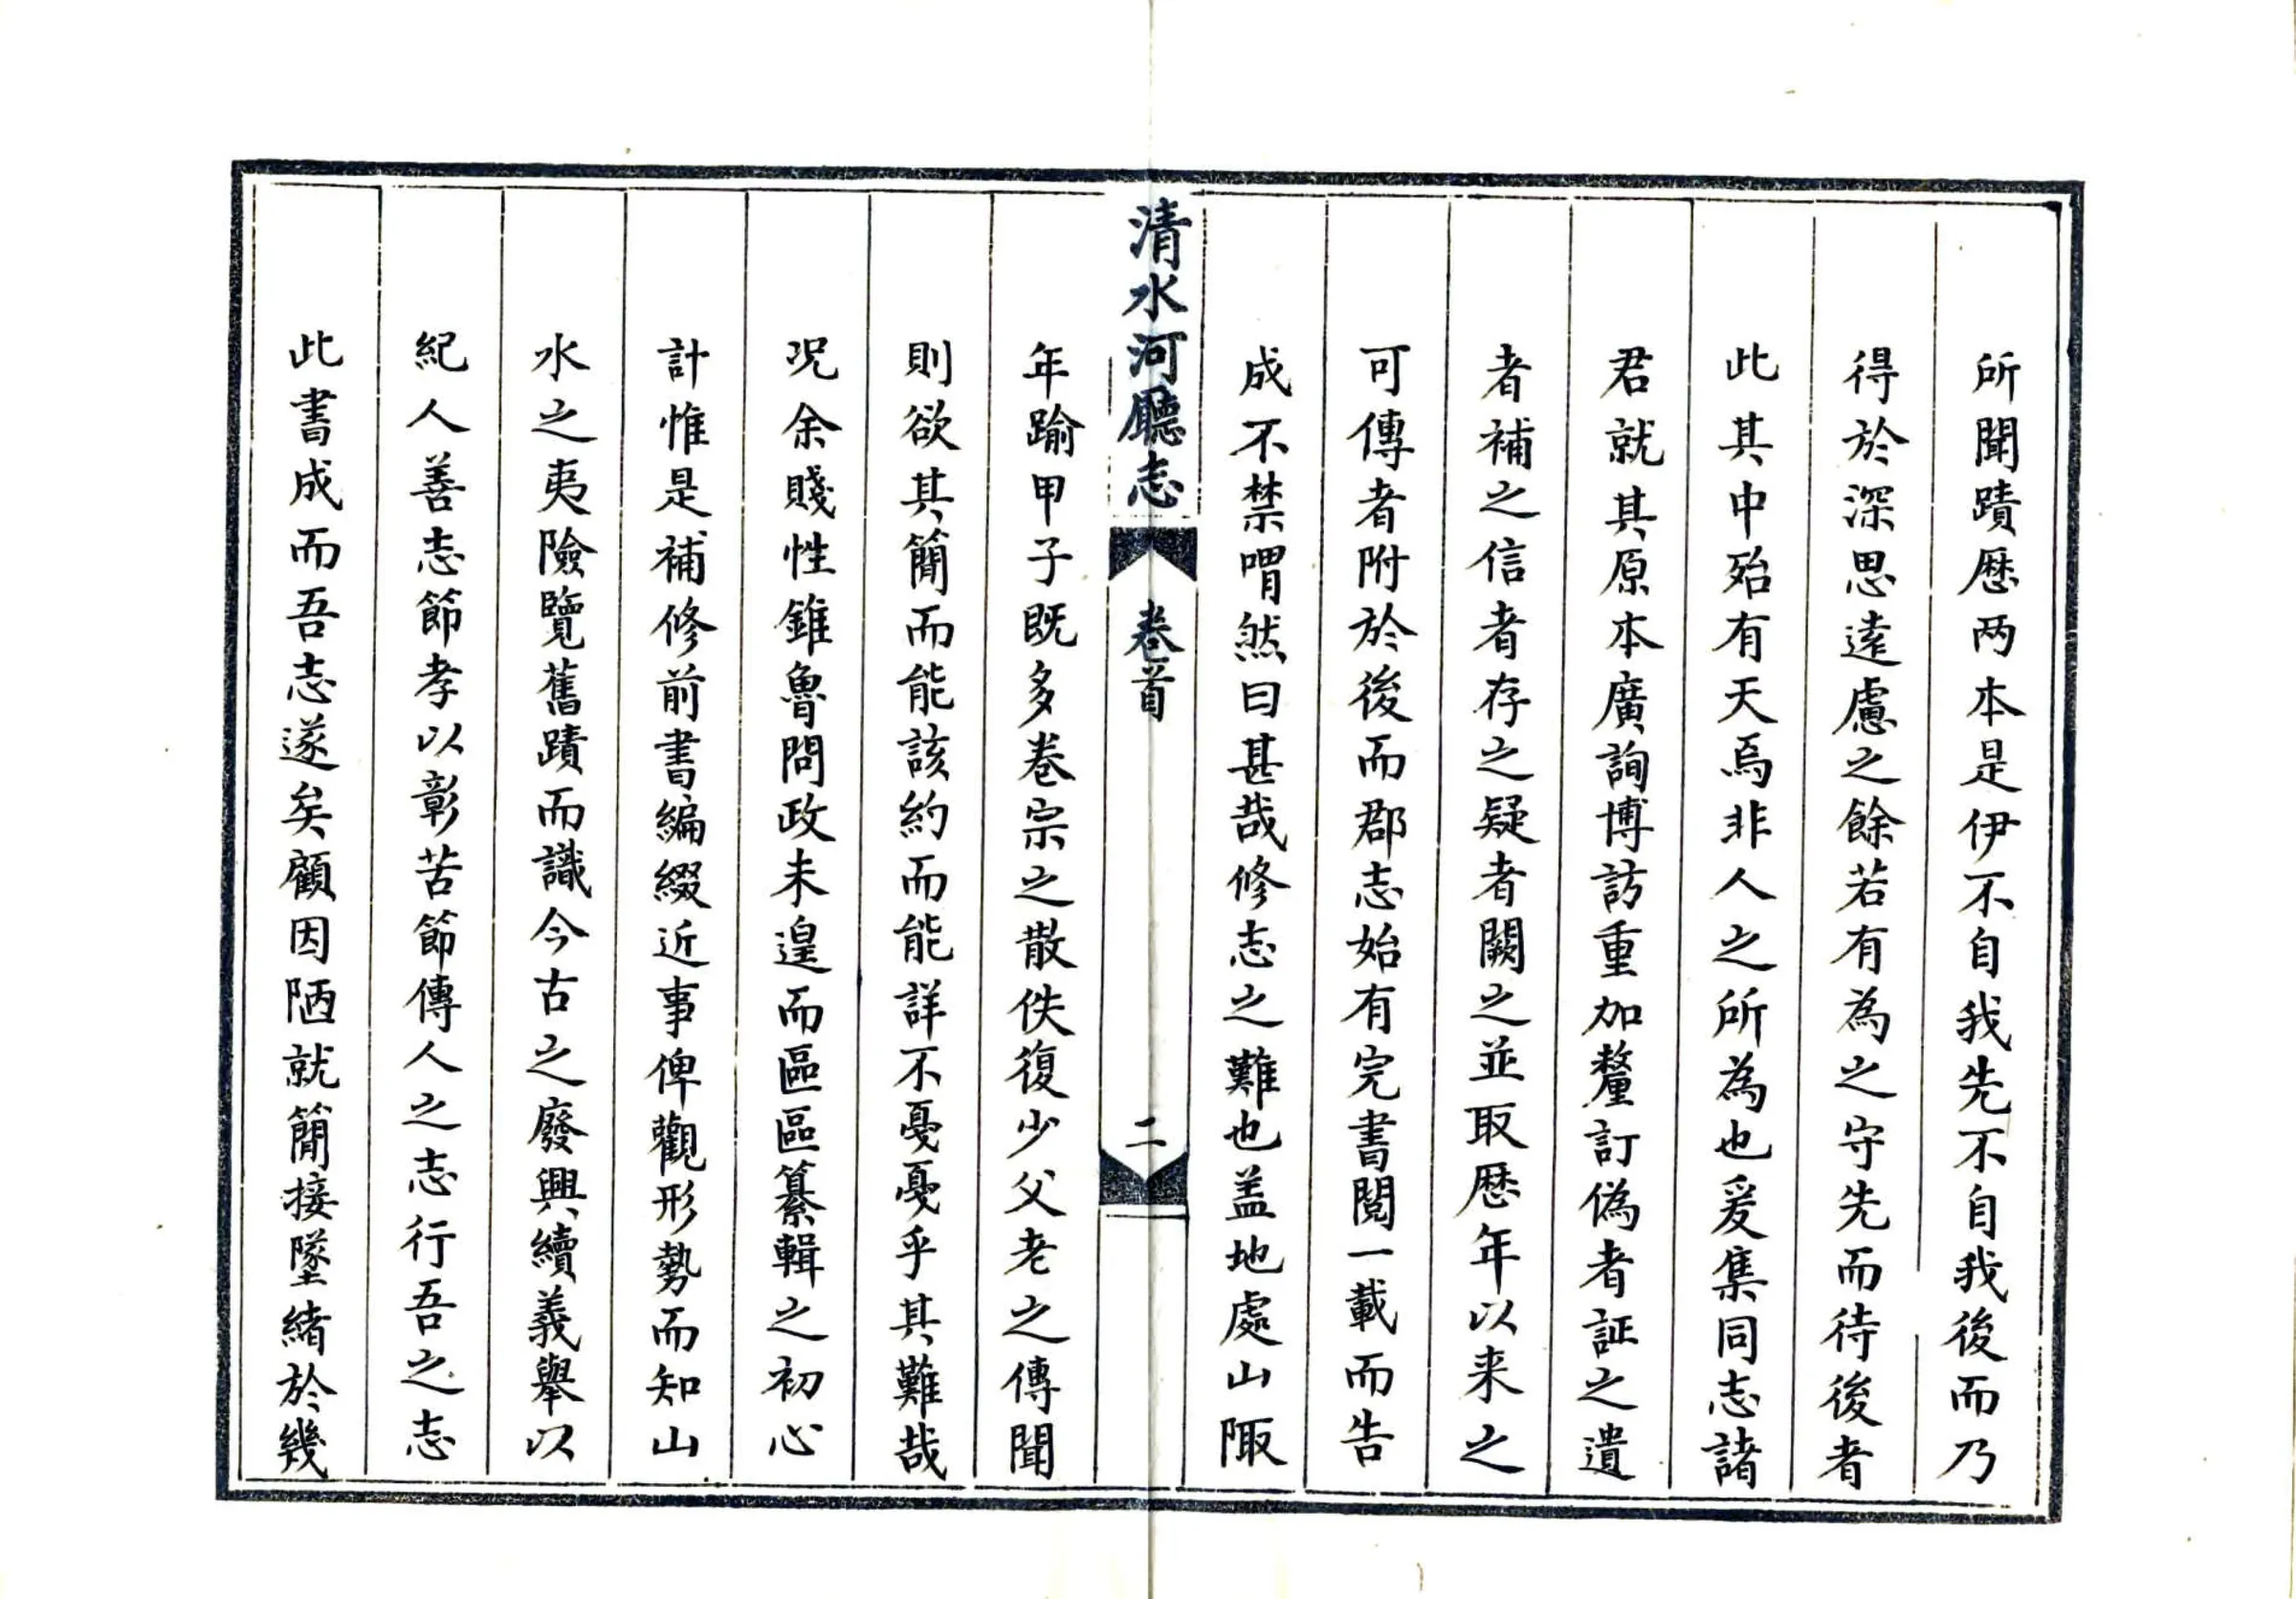 所聞蹟歷两本是伊不自我先不自我後而乃
得於深思遠慮之餘若有為之守先而待後者
此其中殆有天焉非人之所為也爰集同志諸
君就其原本廣詢博訪重加釐訂偽者証之遺
者補之信者存之疑者闕之並取歷年以来之
可傳者附於後而郡志始有完書閱一載而告
成不禁喟然曰甚哉修志之難也盖地處山陬
清水河廳志
卷首
二
年踰甲子既多卷宗之散佚復少父老之傳聞
則欲其簡而能該約而能詳不戛戛乎其難哉
况余賤性錐魯問政未遑而區區纂輯之初心
計惟是補修前書編綴近事俾觀形勢而知山
水之夷險覽舊蹟而識今古之廢興續義舉以
紀人善志節孝以彰苦節傳人之志行吾之志
此書成而吾志遂矣顧因陋就簡接墜緒於幾